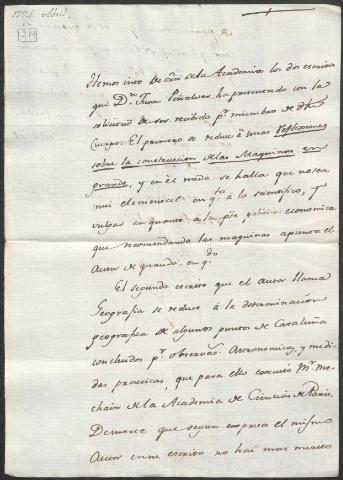 1794 Abril.
214
Hemos visto de orn. de la Academia los dos escritos
que Dn. Juan Peñalver ha presentado con la
solicitud de ser recibido pr. miembro de dho
Cuerpo. El primero se reduce à unas reflexiones
sobre la construccion de las Maquinas en
grande, y en el nada se halla que no sea
mui elemental en qto. à lo scientifico, y
vulgar en quanto à la pte. politico economica
que recomendando las maquinas apunta el
Autor de quando en qdo.
El segundo escrito que el autor llama
Geografia se reduce à la determinacion
geografica de algunos puntos de Cataluña
concluidos pr. observacs. Astronomicas, y medi-
das practicas, que para ello executó Mr. Me-
chain de la Academia de Ciencias de Paris.
De suerte que segun expresa el mismo
Autor en este escrito no hai mas merito